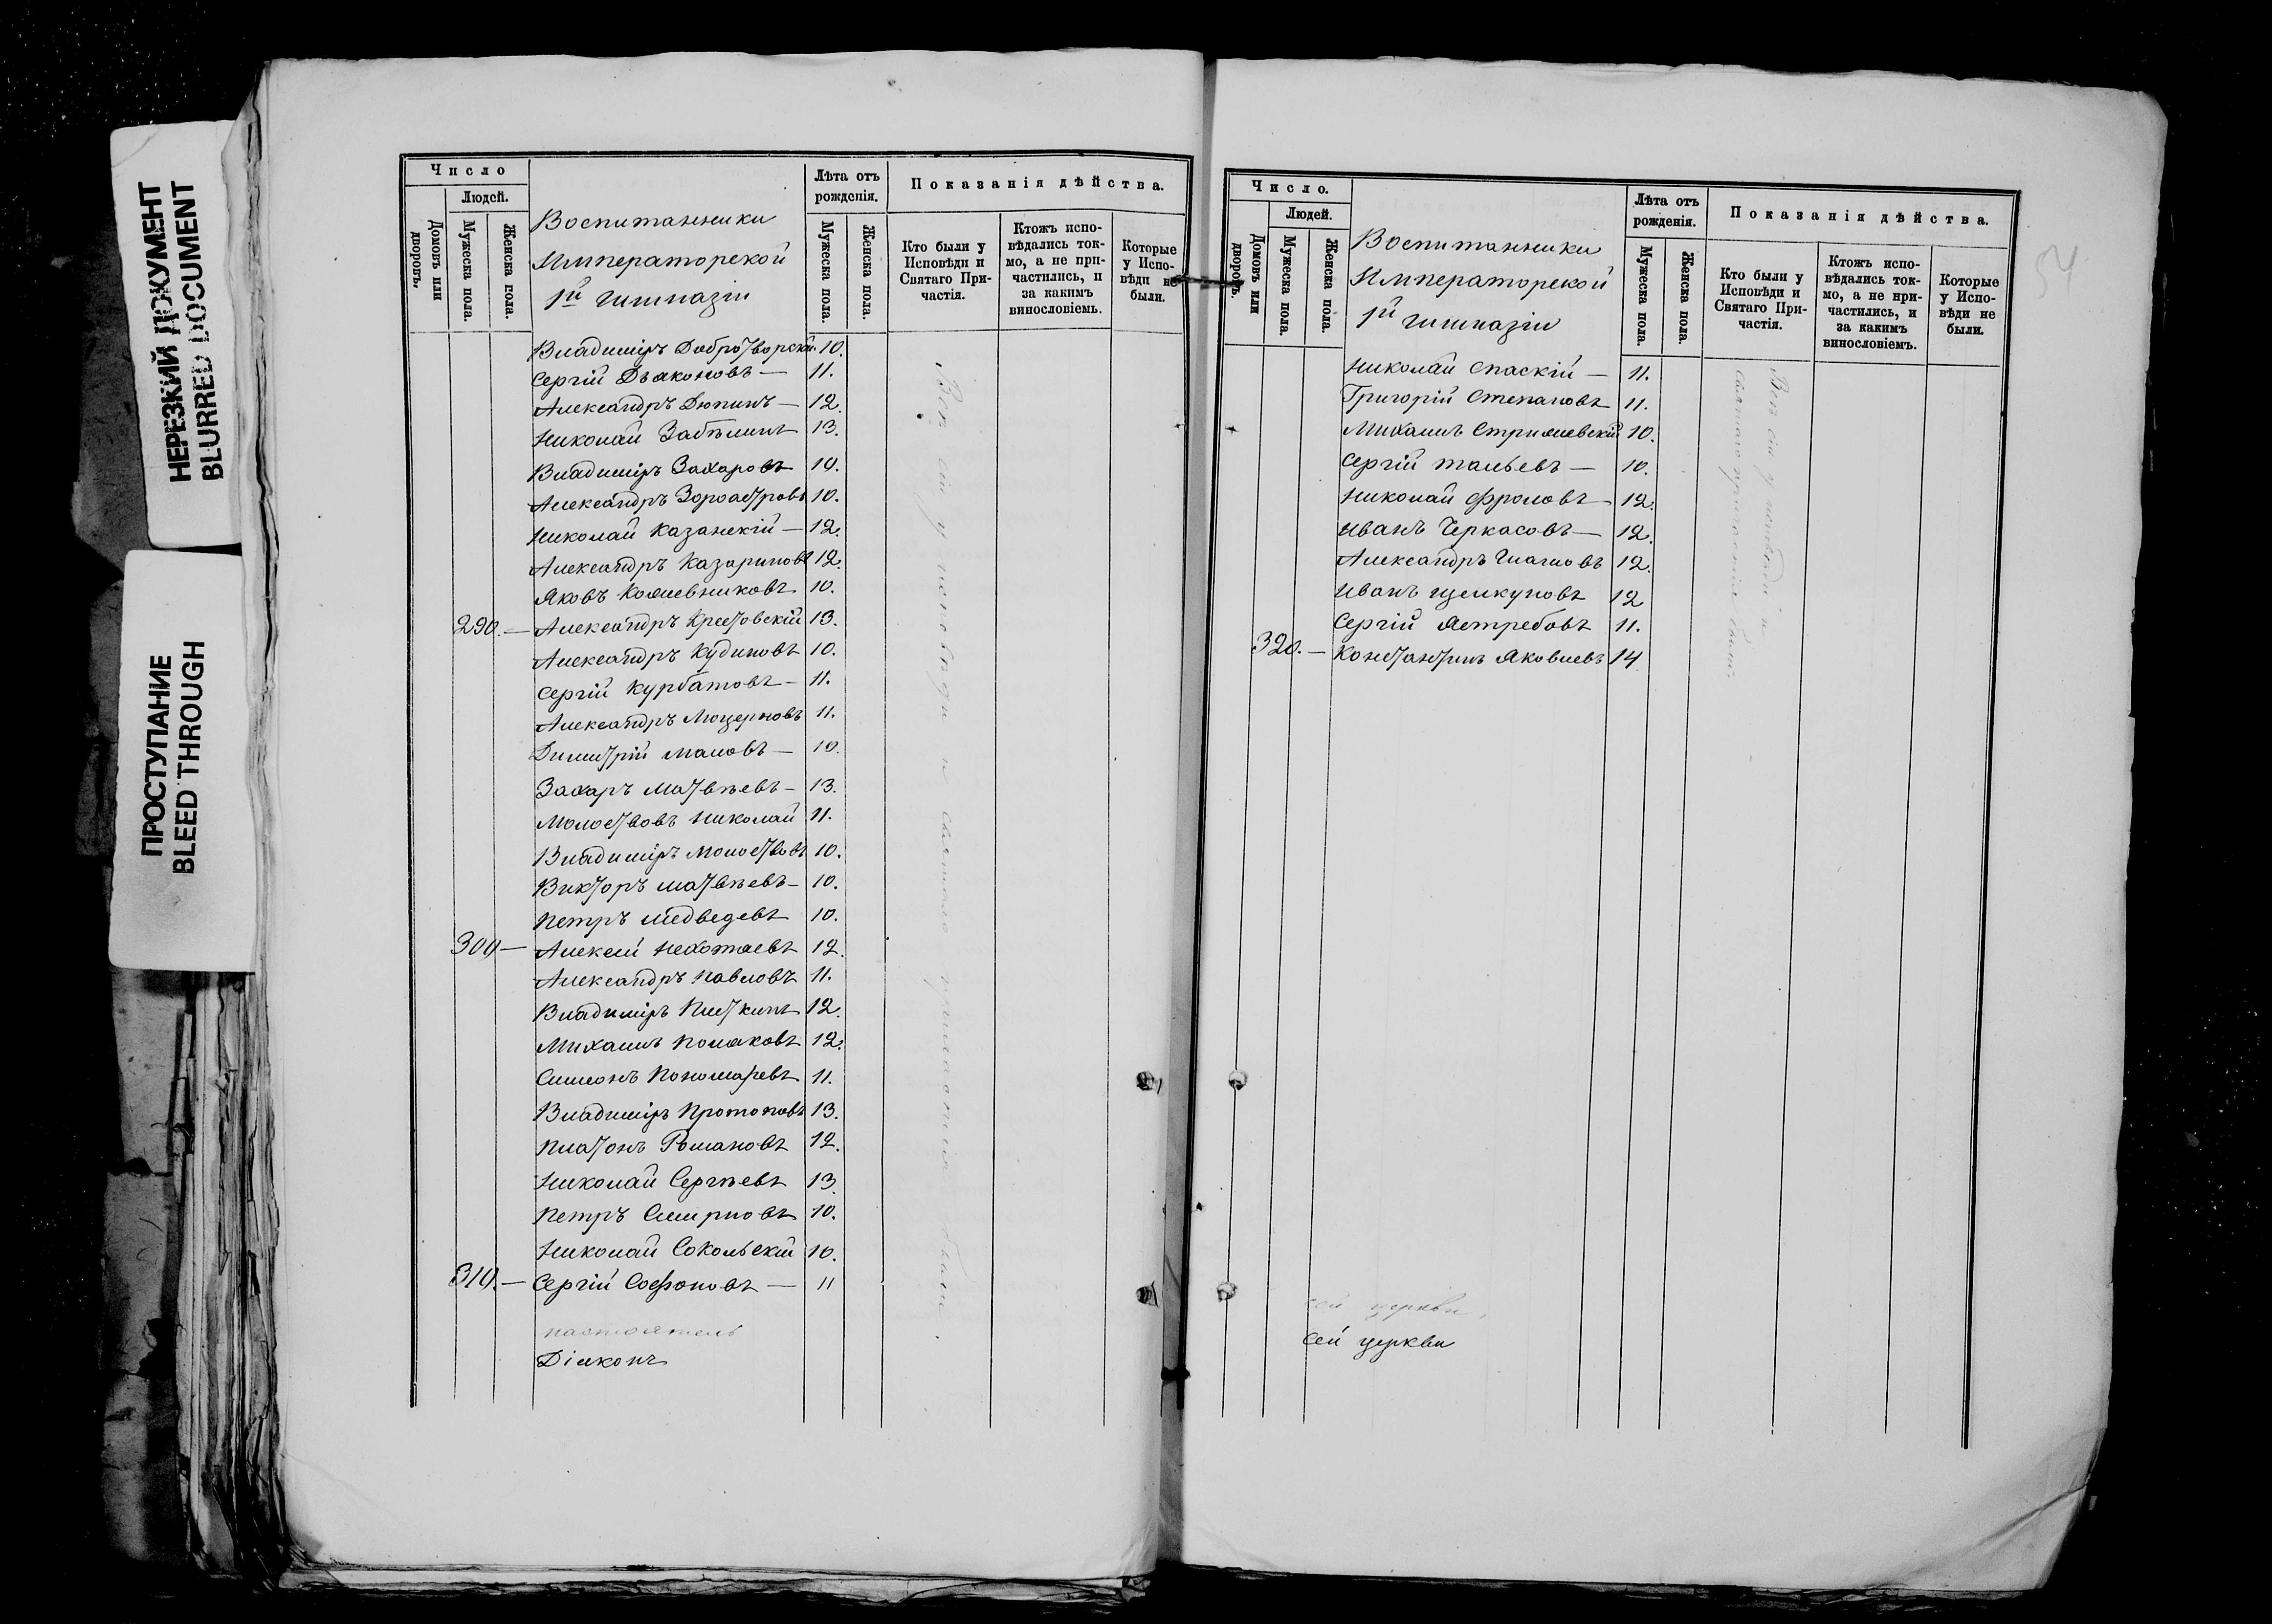 НЕРЕЗКИЙ ДОКУМЕНТ
BLURRED DOCUMENT
ПРОСТУПАНИЕ
BLEED THROUGH
Число
Людей.
Домовъ или дворовъ.
Мужеска пола.
Женска пола.
Воспитанники
Императорской
1й гимназіи
Лѣта отъ рожденія.
Мужеска пола.
Женска пола.
Показанія дѣйства.
Кто были у Исповѣди и Святаго Причастія.
Ктожъ исповѣдались токмо, а не причастились, и за какимъ винословіемъ.
Которые у Исповѣди не были.
Владиміръ Добротворскій 10.
Сергій Дьяконовъ — 11.
Александръ Дюпинъ — 12.
Николай Забѣлинъ 13.
Владиміръ Захаровъ 10.
Александръ Зороастровъ 10.
Николай Казанскій — 12.
Александръ Казариновъ 12.
Яковъ Кожевниковъ 10.
290. — Александръ Крестовскій 13.
Александръ Кудиновъ 10.
Сергій Курбатовъ — 11.
Александръ Люцерновъ 11.
Димитрій Маловъ — 10.
Захаръ Матвѣевъ — 13.
Молоствовъ Николай 11.
Владиміръ Молоствовъ 10.
Викторъ Матвѣевъ — 10.
Петръ Медведевъ 10.
300 — Алексѣй Нехотяевъ 12.
Александръ Павловъ 11.
Владиміръ Питкинъ 12.
Михаилъ Поляковъ 12.
Симеонъ Пономаревъ 11.
Владиміръ Протоповъ 13.
Платонъ Романовъ 12.
Николай Сергѣевъ 13.
Петръ Смирновъ 10.
Николай Сокольскій 10.
310. — Сергій Софоновъ — 11
Всѣ сіи у исповѣди и святаго причастія были.
настоятель
Діаконъ
Число.
Людей.
Домовъ или дворовъ.
Мужеска пола.
Женска пола.
Воспитанники
Императорской
1й гимназіи
Лѣта отъ рожденія.
Мужеска пола.
Женска пола.
Показанія дѣйства.
Кто были у Исповѣди и Святаго Причастія.
Ктожъ исповѣдались токмо, а не причастились, и за какимъ винословіемъ.
Которые у Исповѣди не были.
Николай Спаскій — 11.
Григорій Степановъ 11.
Михаилъ Стрижевскій 10.
Сергій Тальевъ — 10.
Николай Фроловъ — 12.
Иванъ Черкасовъ — 12.
Александръ 12.
Иванъ Щелкуновъ 12
Сергій Ястребовъ 11.
320. — Константинъ Яковлевъ 14
Всѣ сіи у исповѣди и
святаго причастія были.
сей церкви,
сей церкви
54